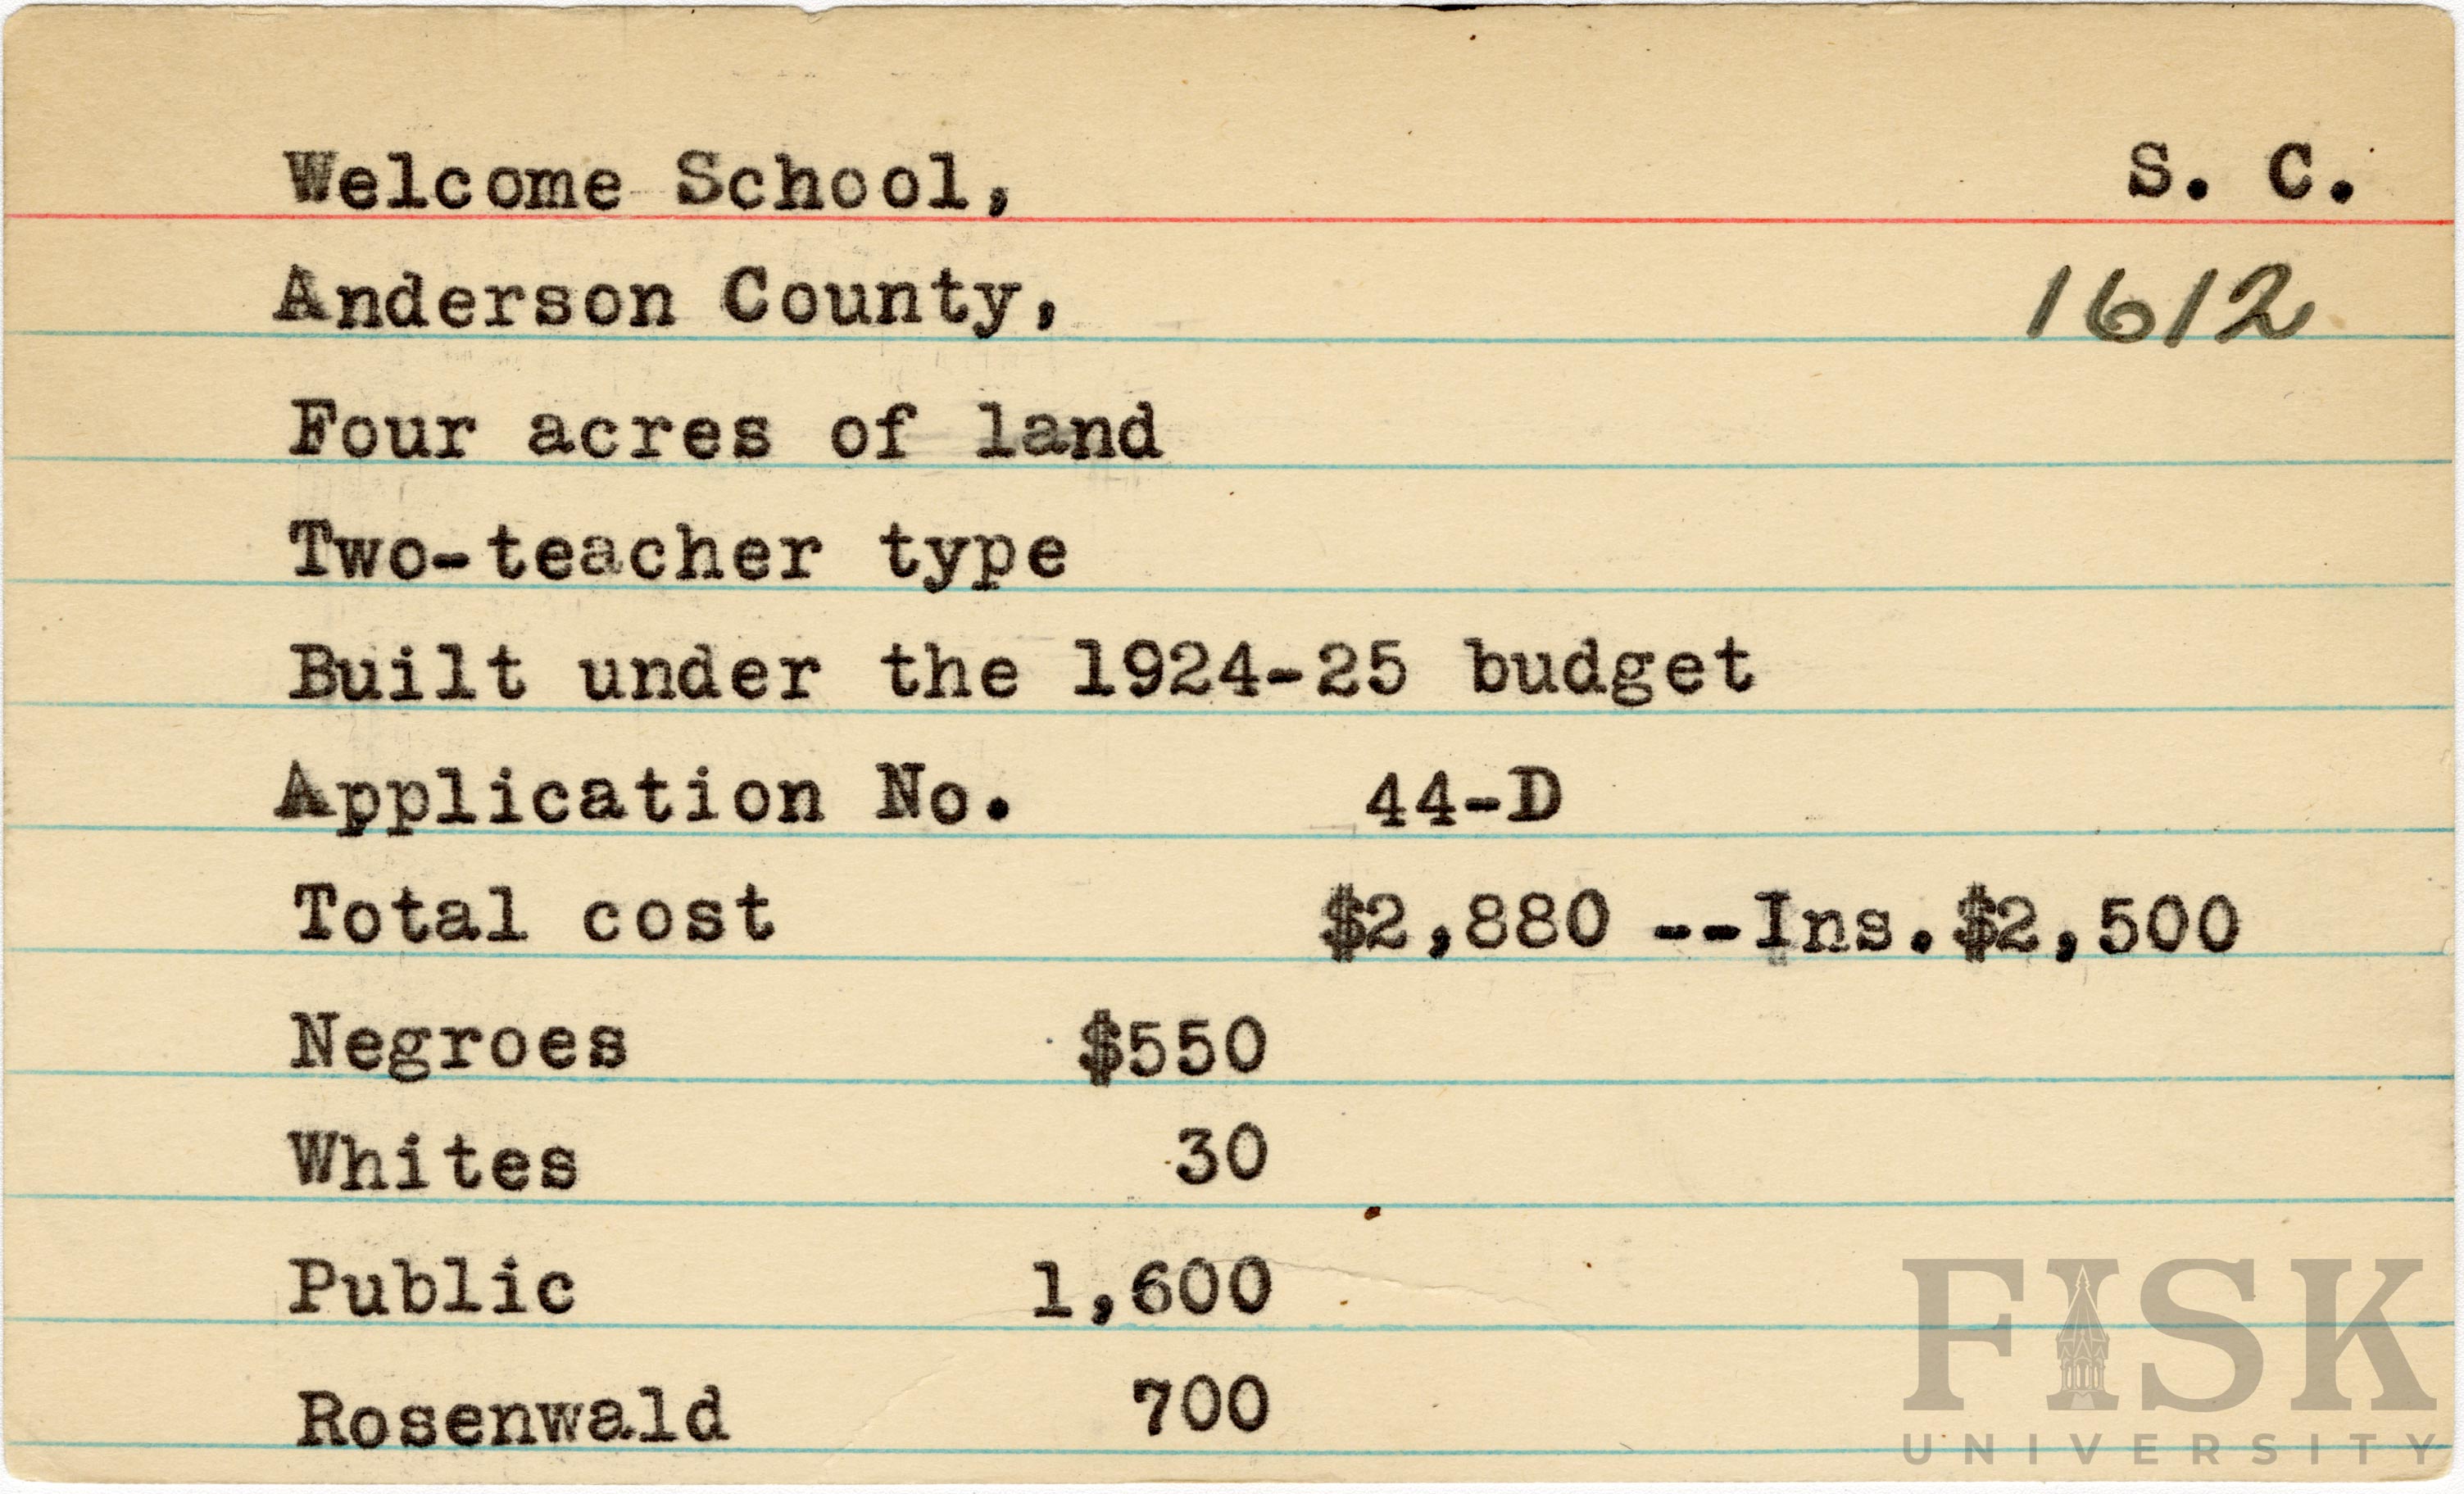 Welcome School, S. C.
Anderson County, 1612
Four acres of land
Two-teacher type
Built under the 1924-25 budget
Application No. 44-D
Total cost $2,880 --Ins.$2,500
Negroes $550
Whites 30
Public 1,600
Rosenwald 700
FISK
UNIVERSITY